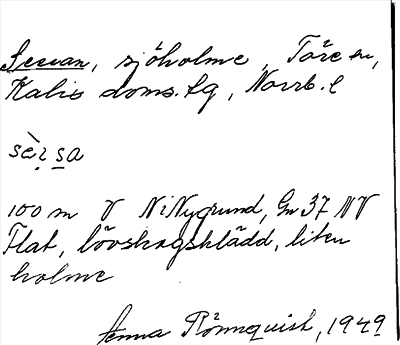 Sessan, sjöholme, Töre sn,
Kalix doms.lg, Norrb. l
sè̀ṛ s̱a
100 m V Ni Nygrund, Gm 37 NV
Flat, lövskogsklädd, liten
holme
Anna Rönnequist, 1949